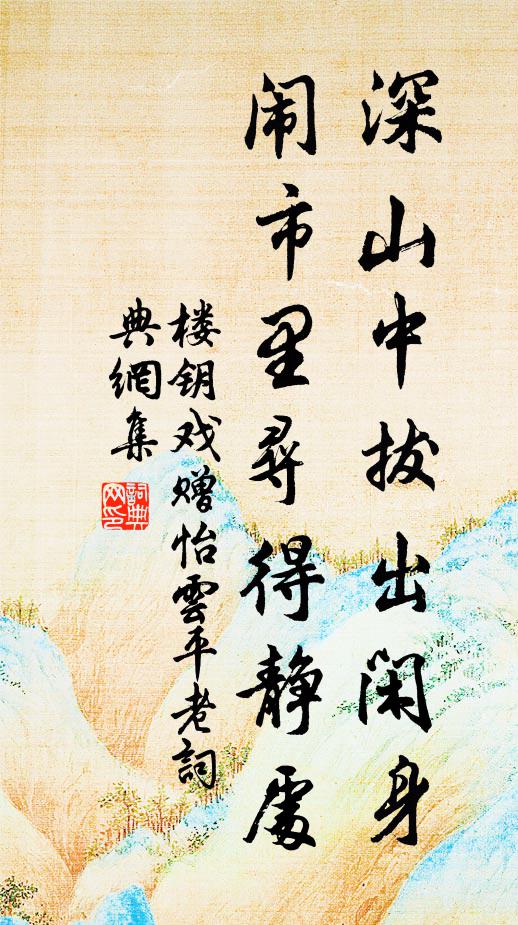 深山中拔出闲身
闹市里寻得静處
楼钥戏赠怡雲平老詞
典網集
詞典
网印